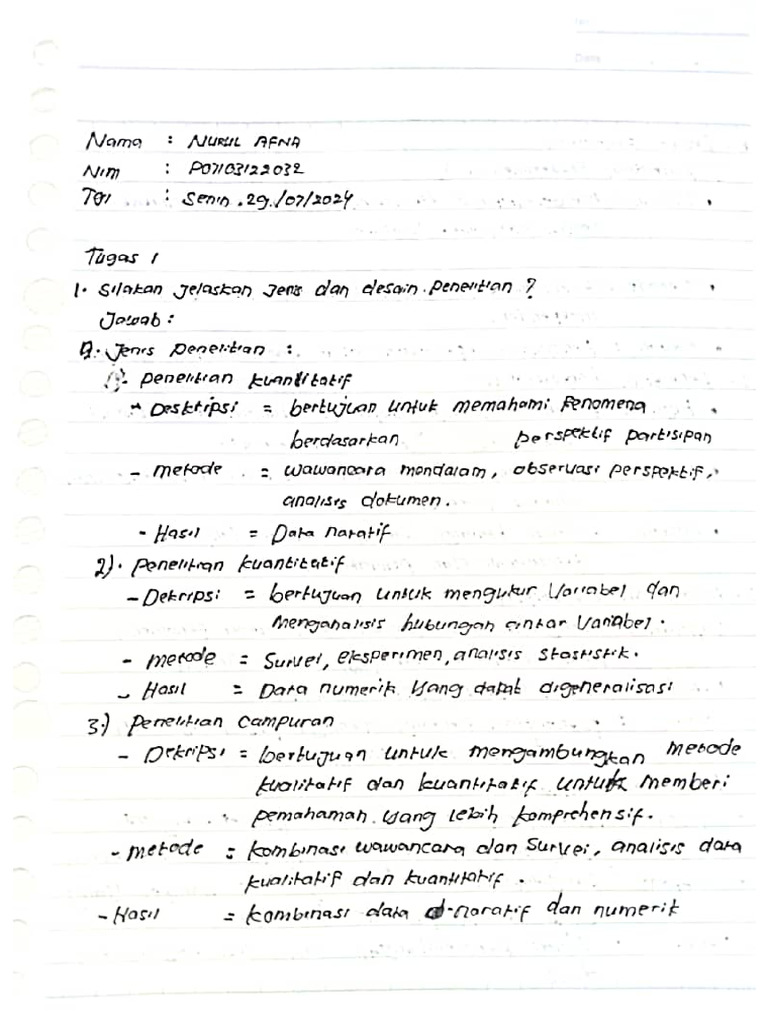 Nama : NURUL AFNA
Nim : P07103122032
Tgl : Senin, 29/07/2024
Tugas 1
1. Silakan jelaskan jenis dan desain penelitian ?
Jawab :
a. Jenis penelitian :
1). penelitian kuantitatif
- Deskripsi = bertujuan untuk memahami fenomena
berdasarkan perspektif partisipan
- metode = wawancara mondalam, observasi perspektif,
analisis dokumen.
- Hasil = Data naratif
2). penelitian kuantitatif
- Dekripsi = bertujuan untuk mengukur variabel dan
menganalisis hubungan antar variabel.
- metode = Survei, eksperimen, analisis stastistik.
- Hasil = Data numerik yang dapat digeneralisasi
3.) penelitian campuran
- Dekripsi = bertujuan untuk mengambungkan metode
kualitatif dan kuantitatif untuk memberi
pemahaman yang lebih komprehensif.
- metode = kombinasi wawancara dan survei, analisis data
kualitatif dan kuantitatif.
- Hasil = kombinasi data naratif dan numerik